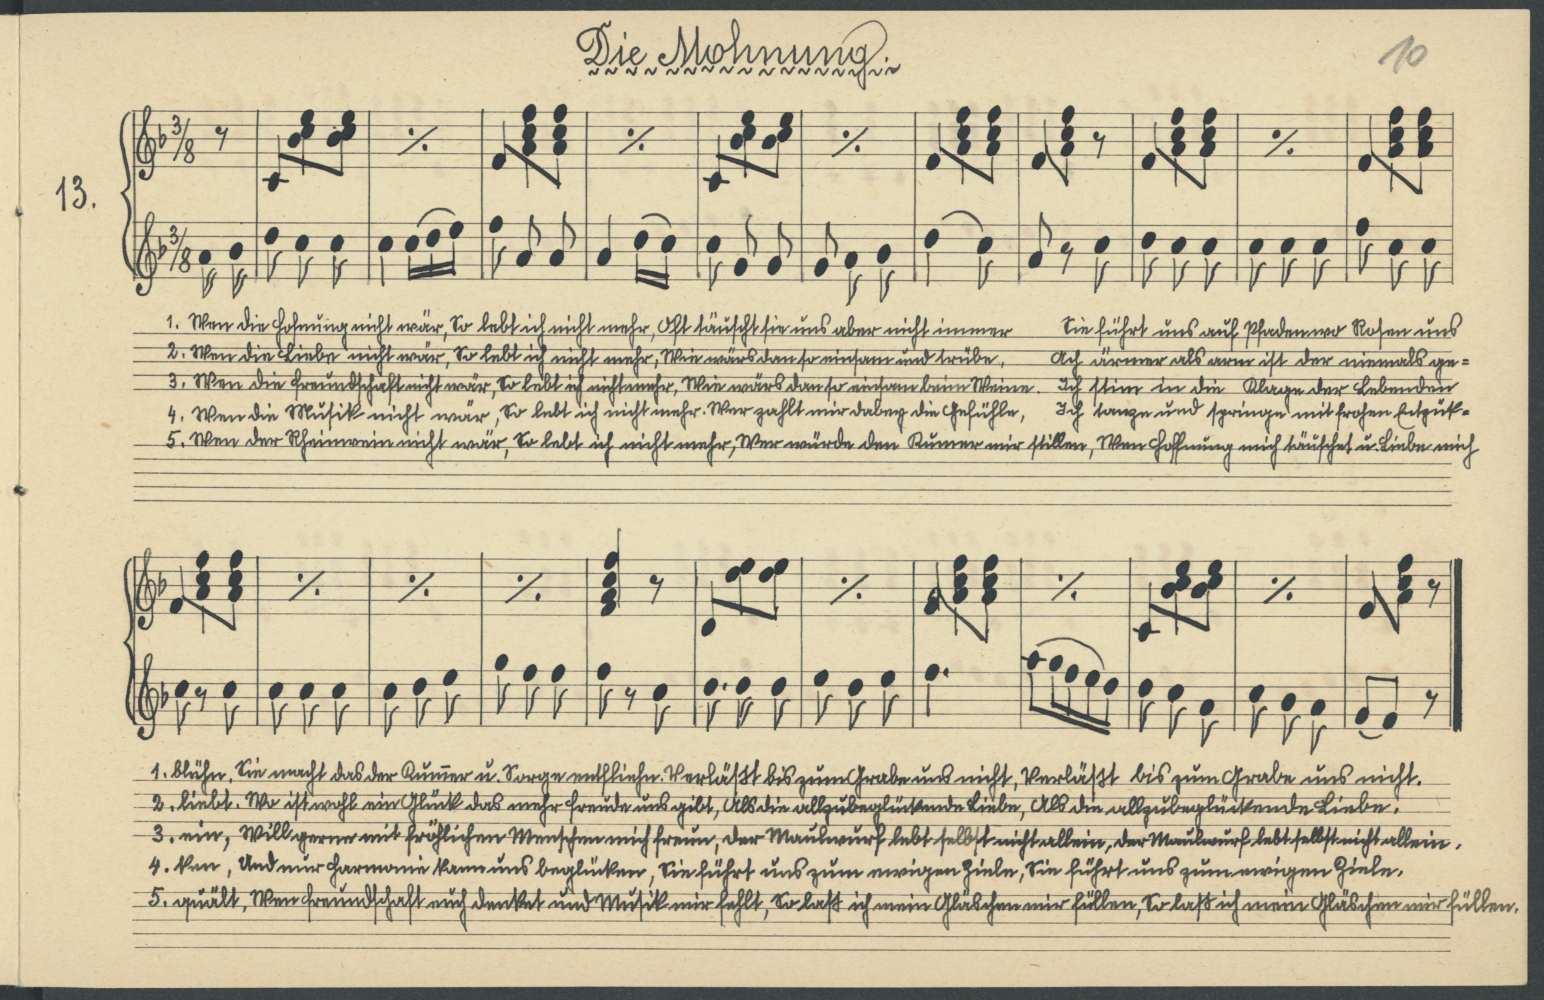 Die Mohnung.
10
13.
1. Wen die Hofnung nicht wär, So lebt ich nicht mehr, Oft täuscht sie uns aber nicht immer Sie führt uns auf Pfaden wo Rosen uns
2. Wen die Liebe nicht wär, So lebt ich nicht mehr, Wie wärs dan so einsam und trübe, Ach ärmer als arm ist der niemals ge=
3. Wen die Freundschaft nicht wär, So lebt ich nicht mehr, Wie wärs dan so einsam beim Weine. Ich stim in die Klage der Lebenden
4. Wen die Musik nicht wär, So lebt ich nicht mehr. Wer zahlt mir dabey die Gefühle, Ich tanze und springe mit frohen Entzük=
5. Wen der Rheinwein nicht wär, So lebt ich nicht mehr, Wer würde den Kumer mir stillen, Wen Hoffnung mich täuschet u. Liebe mich
1. blühn, Sie macht das der Kum̄er u. Sorge entfliehn. Verläßt bis zum Grabe uns nicht, Verläßt bis zum Grabe uns nicht.
2. liebt. Wo ist wohl ein Glück das mehr Freude uns gibt, Als die allzubeglückende Liebe, Als die allzubeglückende Liebe.
3. ein, Will gerne mit fröhlichen Menschen mich freun, der Maulwurf lebt selbst nicht allein, der Maulwurf lebt selbst nicht allein.
4. ken, Und nur Harmonie kann uns beglücken, Sie führt uns zum ewigen Ziele, Sie führt uns zum ewigen Ziele.
5. quält, Wen Freundschaft euch denket und Musik mir fehlt, So laßt ich mein Gläschen mir füllen, So laßt ich mein Gläschen mir füllen.